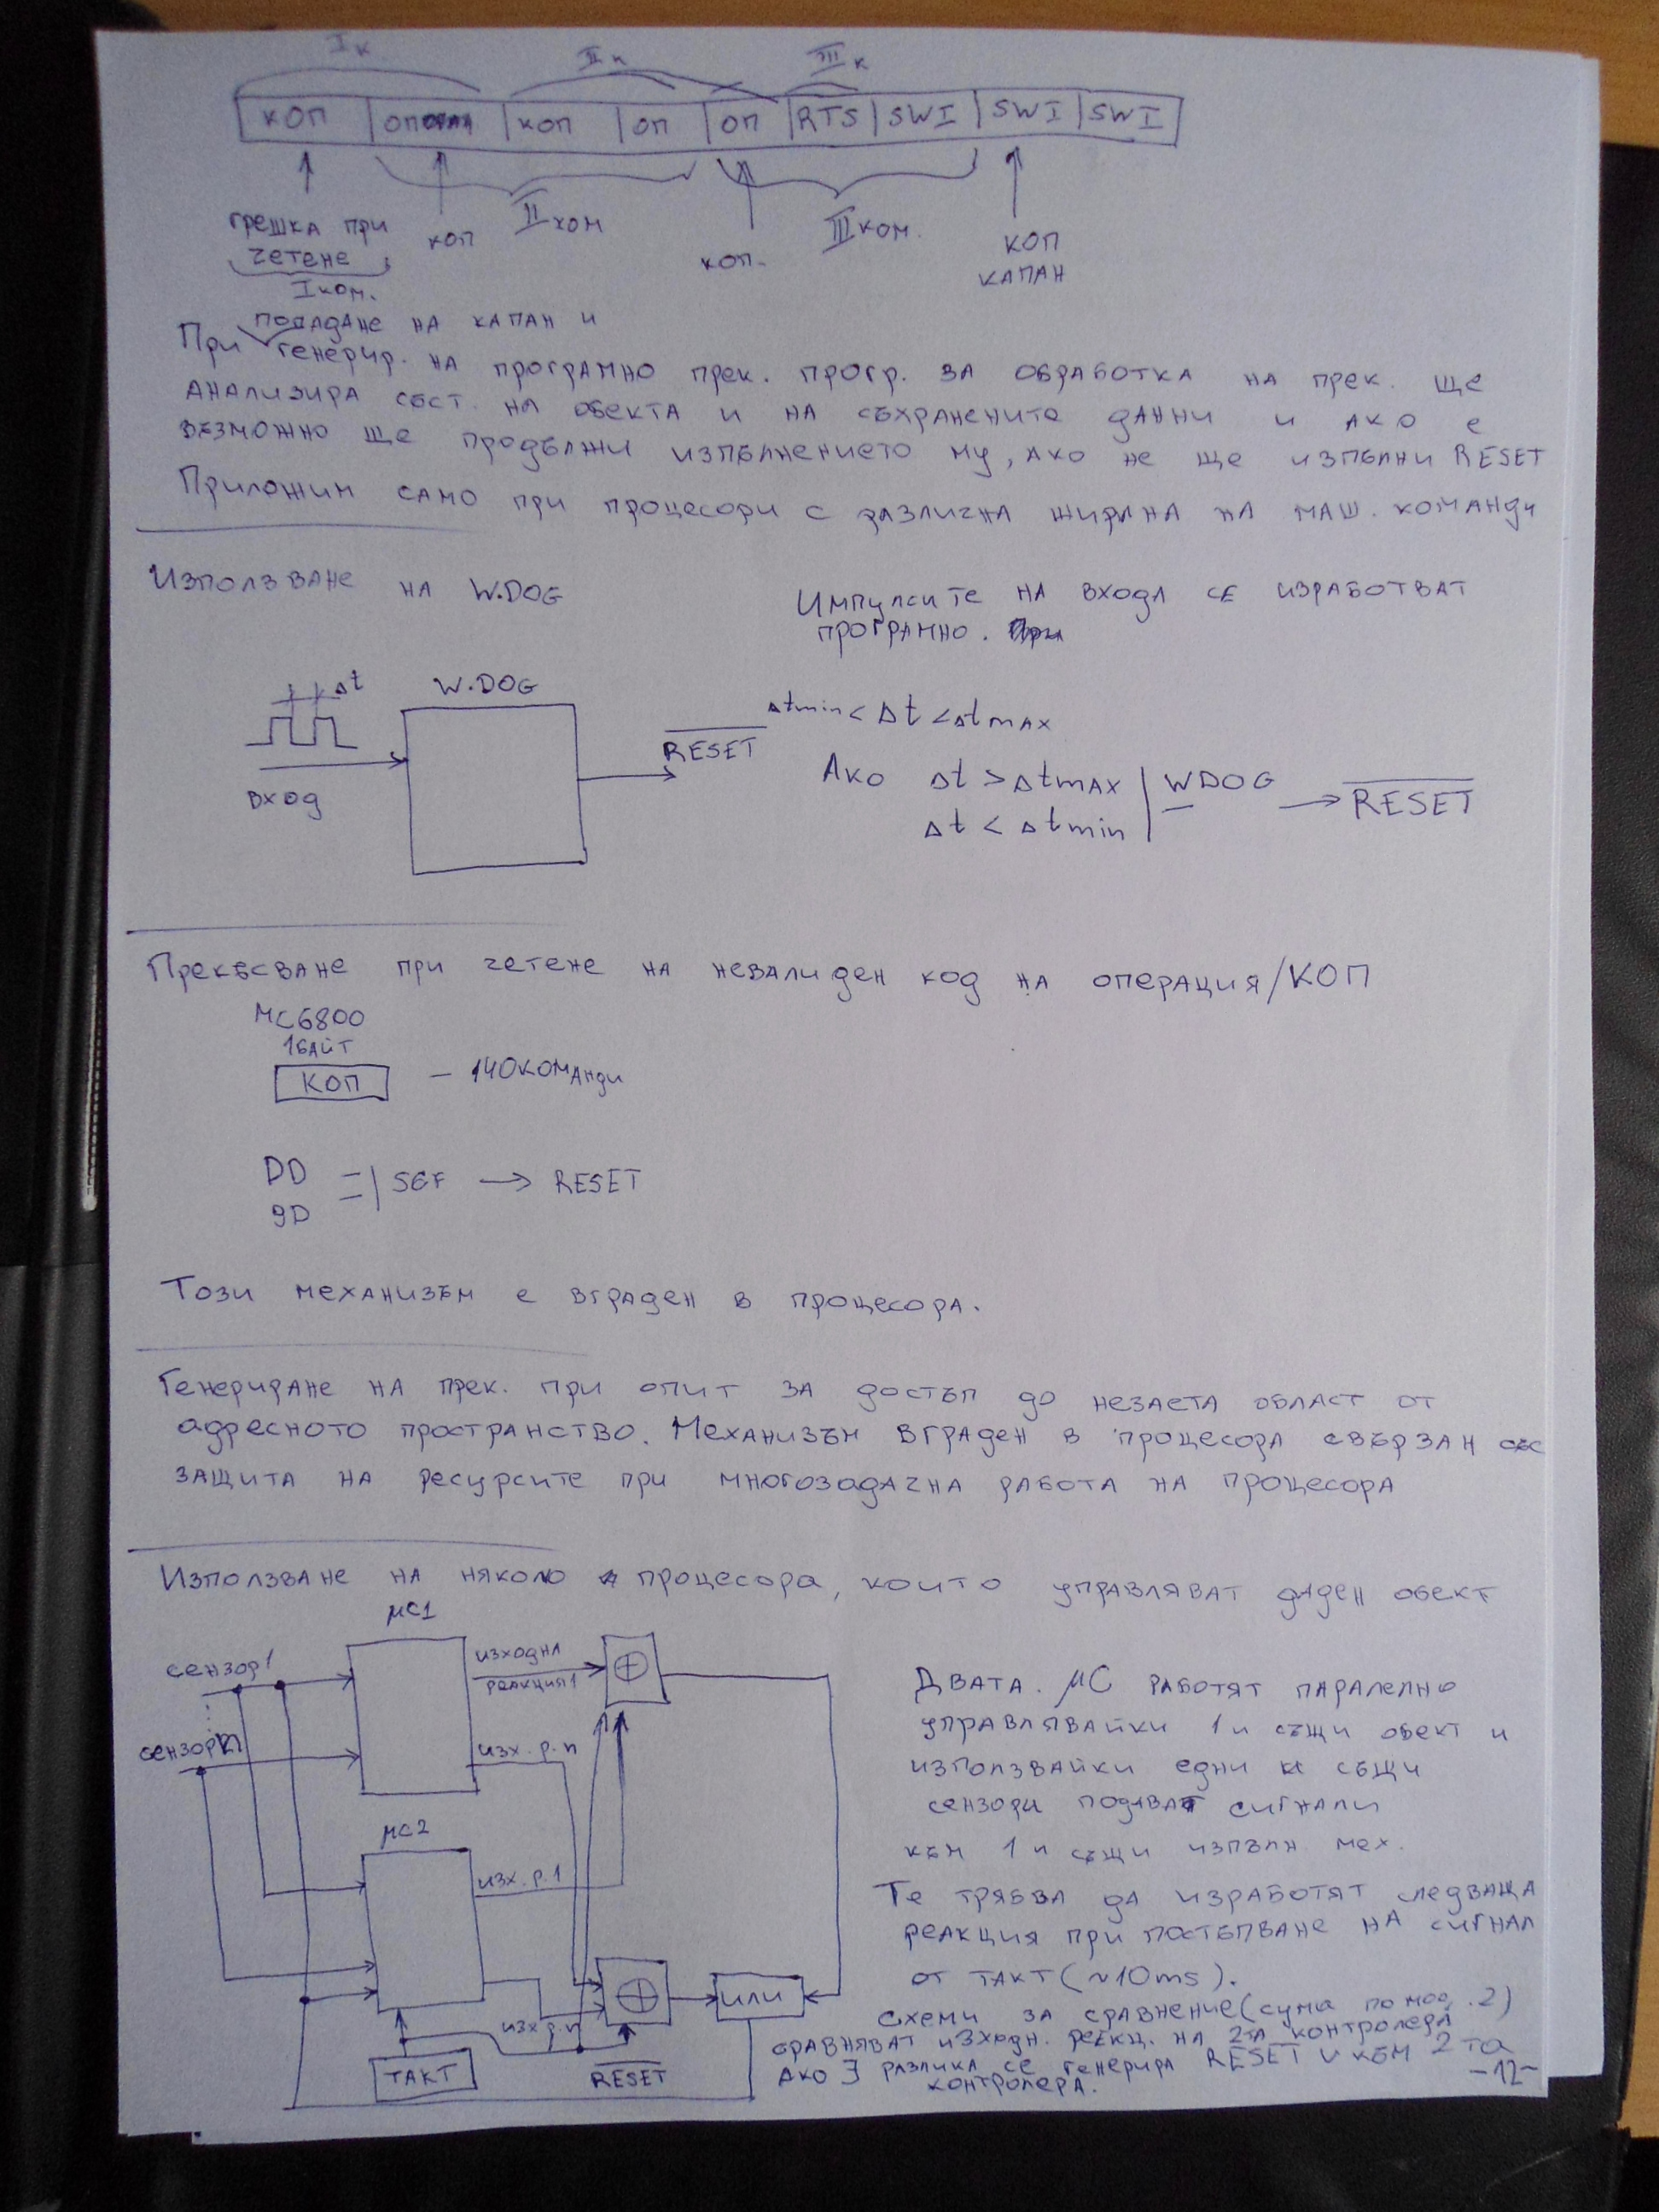 I к II к III к
КОП | ОПЕРАН | КОП | ОП | ОП | RTS | SWI | SWI | SWI
грешка при четене
I ком.
КОП
II ком
КОП
III ком.
КОП КАПАН
попадане на капан и
При генерир. на програмно прек. прогр. за обработка на прек. ще
анализира съст. на обекта и на съхранените данни и ако е
възможно ще продължи изпълнението му, ако не ще изпълни RESET
Приложим само при процесори с различна ширина на маш. команди
Използване на W.DOG
Импулсите на входа се изработват
програмно.
Δt
W.DOG
вход
RESET
Δtmin < Δt < Δtmax
Ако Δt > Δtmax | WDOG → RESET
Δt < Δtmin
Прекъсване при четене на невалиден код на операция/КОП
MC6800
1байт
КОП – 140команди
DD
9D
= | SGF → RESET
Този механизъм е вграден в процесора.
Генериране на прек. при опит за достъп до незаета област от
адресното пространство. Механизъм вграден в процесора свързан със
защита на ресурсите при многозадачна работа на процесора
Използване на няколо процесора, които управляват даден обект
μC1
сензор1
сензор n
изходна
реакция1
изх. р. n
⊕
μC2
изх. р. 1
изх р. n
⊕
или
ТАКТ
RESET
Двата μC работят паралелно
управлявайки 1 и същи обект и
използвайки едни и същи
сензори подават сигнали
към 1 и същи изпълн. мех.
Те трябва да изработят следваща
реакция при постъпване на сигнал
от ТАКТ (~10ms).
Схеми за сравнение (сума по мод. 2)
сравняват изходн. реакц. на 2та контролера
Ако ∃ разлика се генерира RESET и към 2та
контролера.
-12-